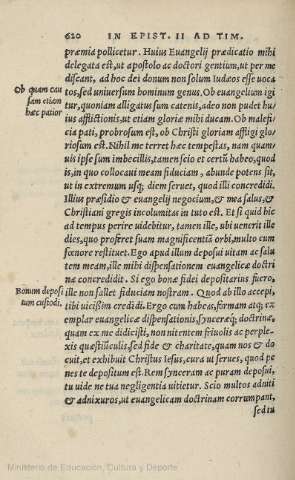 620 IN EPIST. II AD TIM.
præmia pollicetur. Huius Euangelij prædicatio mihi
delegata est, ut apostolo ac doctori gentium, ut per me
discant, ad hoc dei donum non solum Iudæos esse uoca
Ob quam cau tos, sed uniuersum hominum genus. Ob euangelium igi
sam etiam tur, quoniam alligatus sum catenis, adeo non pudet hu/
hæc patior ius afflictionis, ut etiam gloriæ mihi ducam. Ob malefi/
cia pati, probrosum est, ob Christi gloriam affligi glo/
riosum est. Nihil me terret hæc tempestas, nam quam/
uis ipse sum imbecillis, tamen scio et certū habeo, quod
is, in quo collocaui meam fiduciam, abunde potens sit,
ut in extremum usq; diem seruet, quod illi concredidi.
Illius præsidio & euangelij negocium, & mea salus, &
Christiani gregis incolumitas in tuto est. Et si quid hic
ad tempus perire uidebitur, tamen ille, ubi uenerit ille
dies, quo proferet suam magnificentiā orbi, multo cum
fœnore restituet. Ego apud illum deposui uitam ac salu
tem meam, ille mihi dispensationem euangelicæ doctri
næ concredidit. Si ego bonæ fidei depositarius fuero,
Bonum deposi ille non fallet fiduciam nostram. Quod ab illo accepi,
tum custodi. tibi uicissim credidi. Ergo cum habeas, formam atq; ex
emplar euangelicæ dispensationis, synceræq; doctrinæ,
quam ex me didicisti, non nitentem friuolis ac perple-
xis quæstiūculis, sed fide & charitate, quam nos & do
cuit, et exhibuit Christus Iesus, cura ut serues, quod pe
nes te depositum est. Rem synceram ac puram deposui,
tu uide ne tua negligentia uitietur. Scio multos adniti
& adnixuros, ut euangelicam doctrinam corrumpant,
sed tu
Ministerio de Educación, Cultura y Deporte